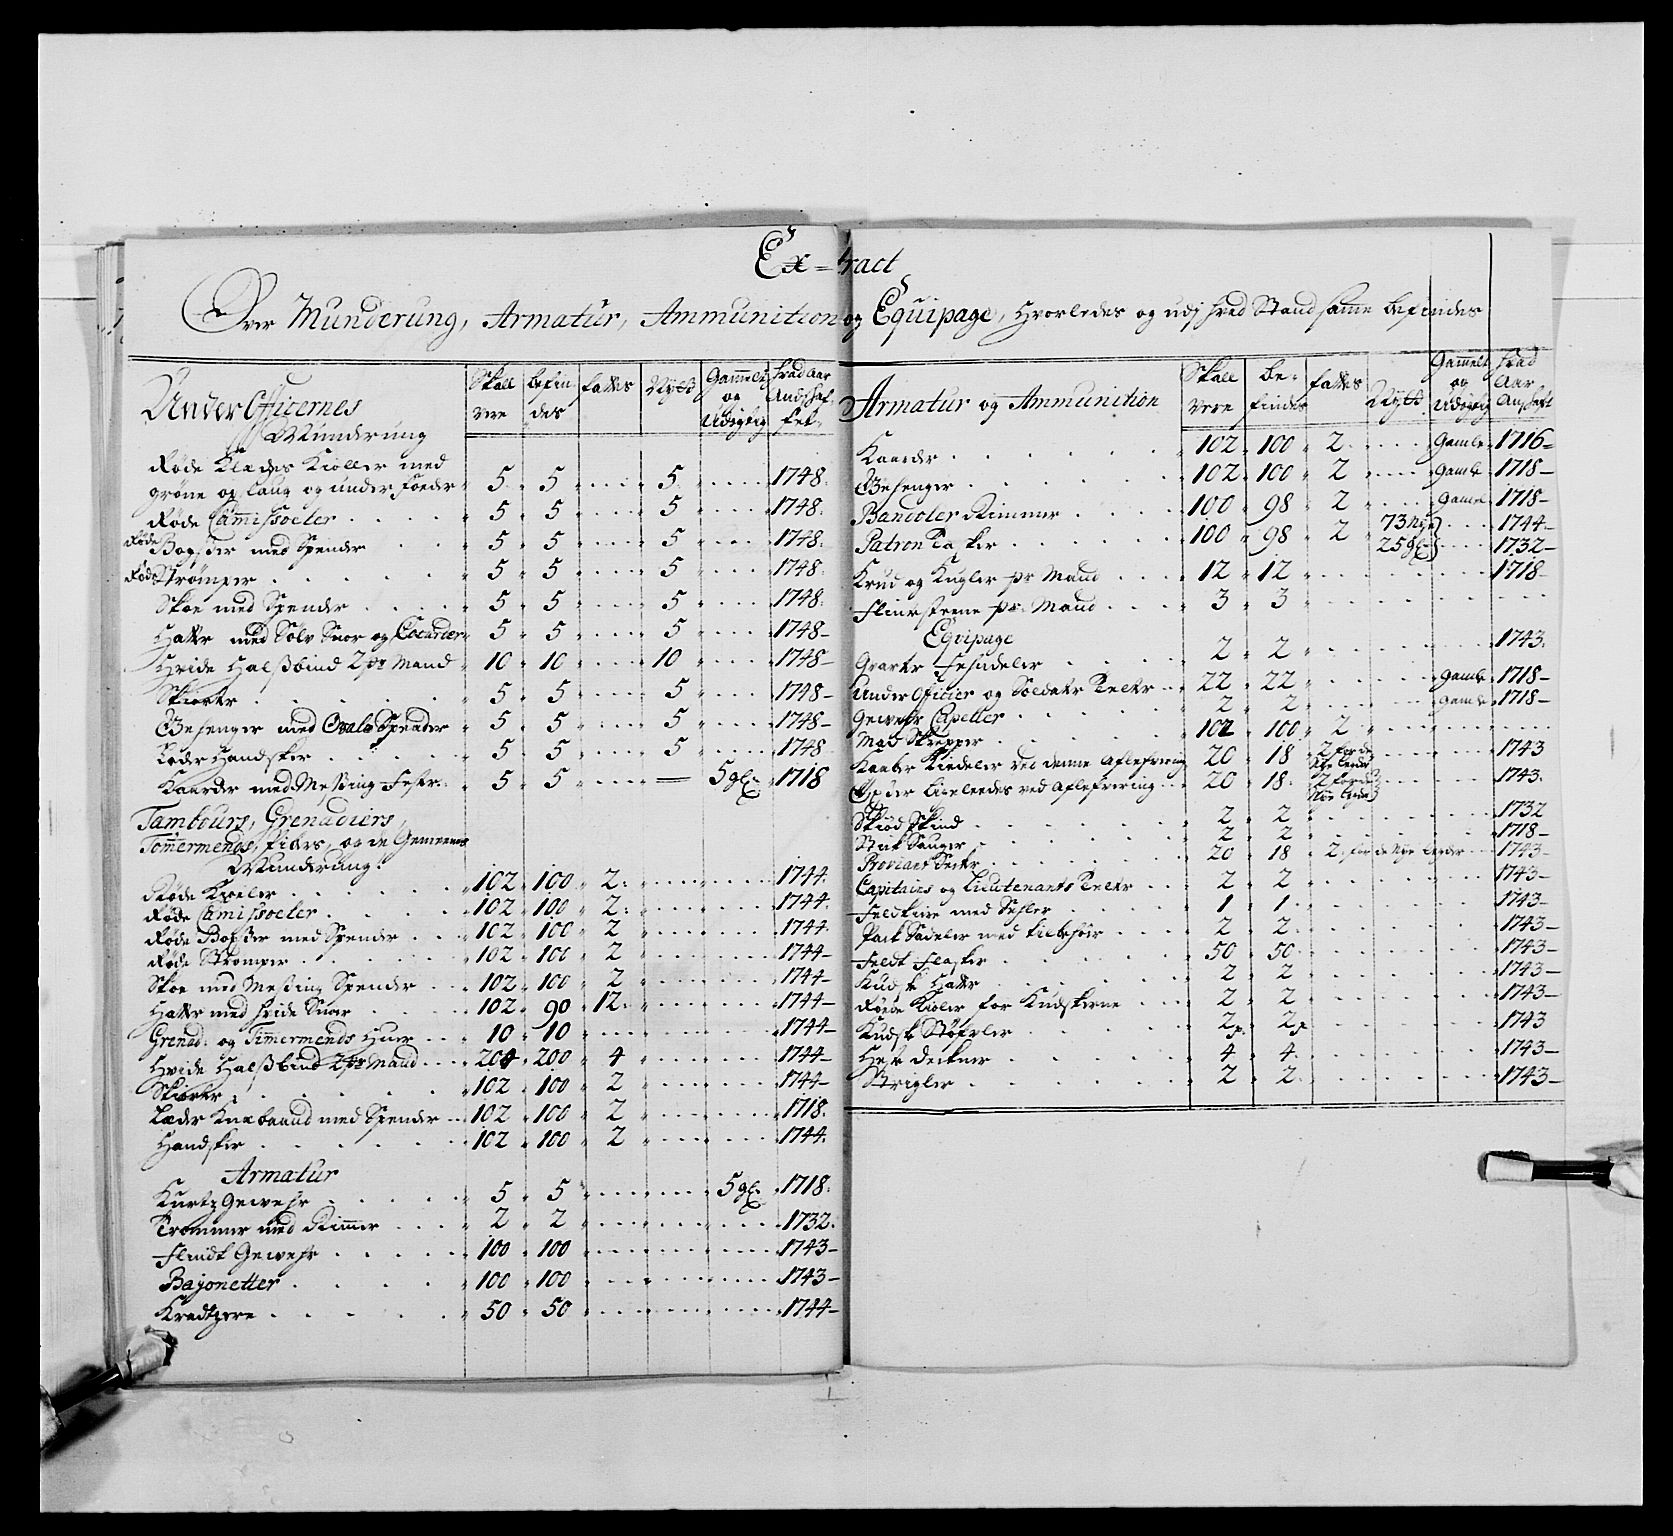 Ex=tract
Over Munderung, Armatur, Ammunition og Equipage, Hvorledes og udj hvad Stand samme befindes
Under Officernes
Munderung
Skall vere | befindes | fattes | Nytt | Gammelt og Udygtig | hvad Aar Andshaffet
Røde Klædes Kioller med
grøne opslaug og under foeder 5 5 5 1748.
Røde Camissoeler 5 5 5 1748.
Røde Boxser med Spender 5 5 5 1748.
Røde Strømper 5 5 5 1748.
Skoe med Spender 5 5 5 1748.
Hatte med Sølv Snor og Cocarder 5 5 5 1748-
Hvide Halsbind 2 pr Mand 10 10 10 1748-
Skiorte 5 5 5 1748-
Gehenger med Ovale Spender 5 5 5 1748-
Læder Handsker 5 5 5 1748
Kaarder med Messing Feste 5 5 — 5 gl: 1718
Tambours, Grenadiers,
Tømmermends, Pibers, og de Gemeenes
Munderung
Røde Kioeler 102 100 2: 1744.
Røde Camissoeler 102 100 2: 1744.
Røde Boxser med Spender 102 100 2 1744.
Røde Strømper 102 100 2 1744-
Skoe med Messing Spender 102 100 2 1744-
Hatte med hvide Snor 102 90 12: 1744-
Grenad: og Timmermends Huer 10 10 1744-
Hvide Halsbind 2 pr Mand 204 200 4 1744-
Skiorter 102 100 2 1744-
Læder Knæbaand med Spender 102 100 2 1718.
Handsker 102 100 2 1744.
Armatur
Kurtz Gewehr 5 5 5 gl: 1718.
Trommer med Rimmer 2 2 1732.
Flindt Gewehr 100 100 1743-
Bajonetter 100 100 1743-
Kradtzere 50 50 1744-
Armatur og Ammunition
Skall vere | befindes | fattes | Nytt | Gammelt og Udygtig | hvad Aar Anshaft
Kaarder 102 100 2 Gamle 1716-
Gehenger 102 100 2 Gamle 1718-
Bandoler Rimmer 100 98 2 Gamle 1718-
Patron Tasker 100 98 2 73 nye 1744-
25 gl: 1732-
Krud og Kugler pr Mand 12 12 1718-
Flintsteene pr: Mand 3 3
Eqvipage
2 2 1743.
Under Officier og Soldater Telter 22 22 Gamle 1718-
Gewehr Capeller 2 2 Gamle 1718-
Mad Skrepper 102 100 2
Kaaber Kiedeler ved denne Aflefvering 20 18 2 for de Nye Læder 1743
Øxser ligeleedes ved Aflefvering 20 18. 2 for de Nye Lægder 1743.
Skiød Skind 2 2 1732
2 2 1718-
Proviant Secke 20 18 2. for de Nye Legder 1743-
Capitains og Lieutenants Telte 2 2 1743-
Feldkiste med 1 1. 1743-
Pack Sadeler med tilbehør 2 2. 1743-
Feldt Flasker 50 50 1743-
Kudsk Hatte 2 2 1743-
Røede Kioler for Kudskerne 2 2 1743-
Kudsk Støfeler 2 p 2 p 1743
Heste Deckner 4 4 1743-
Strigler 2 2. 1743-